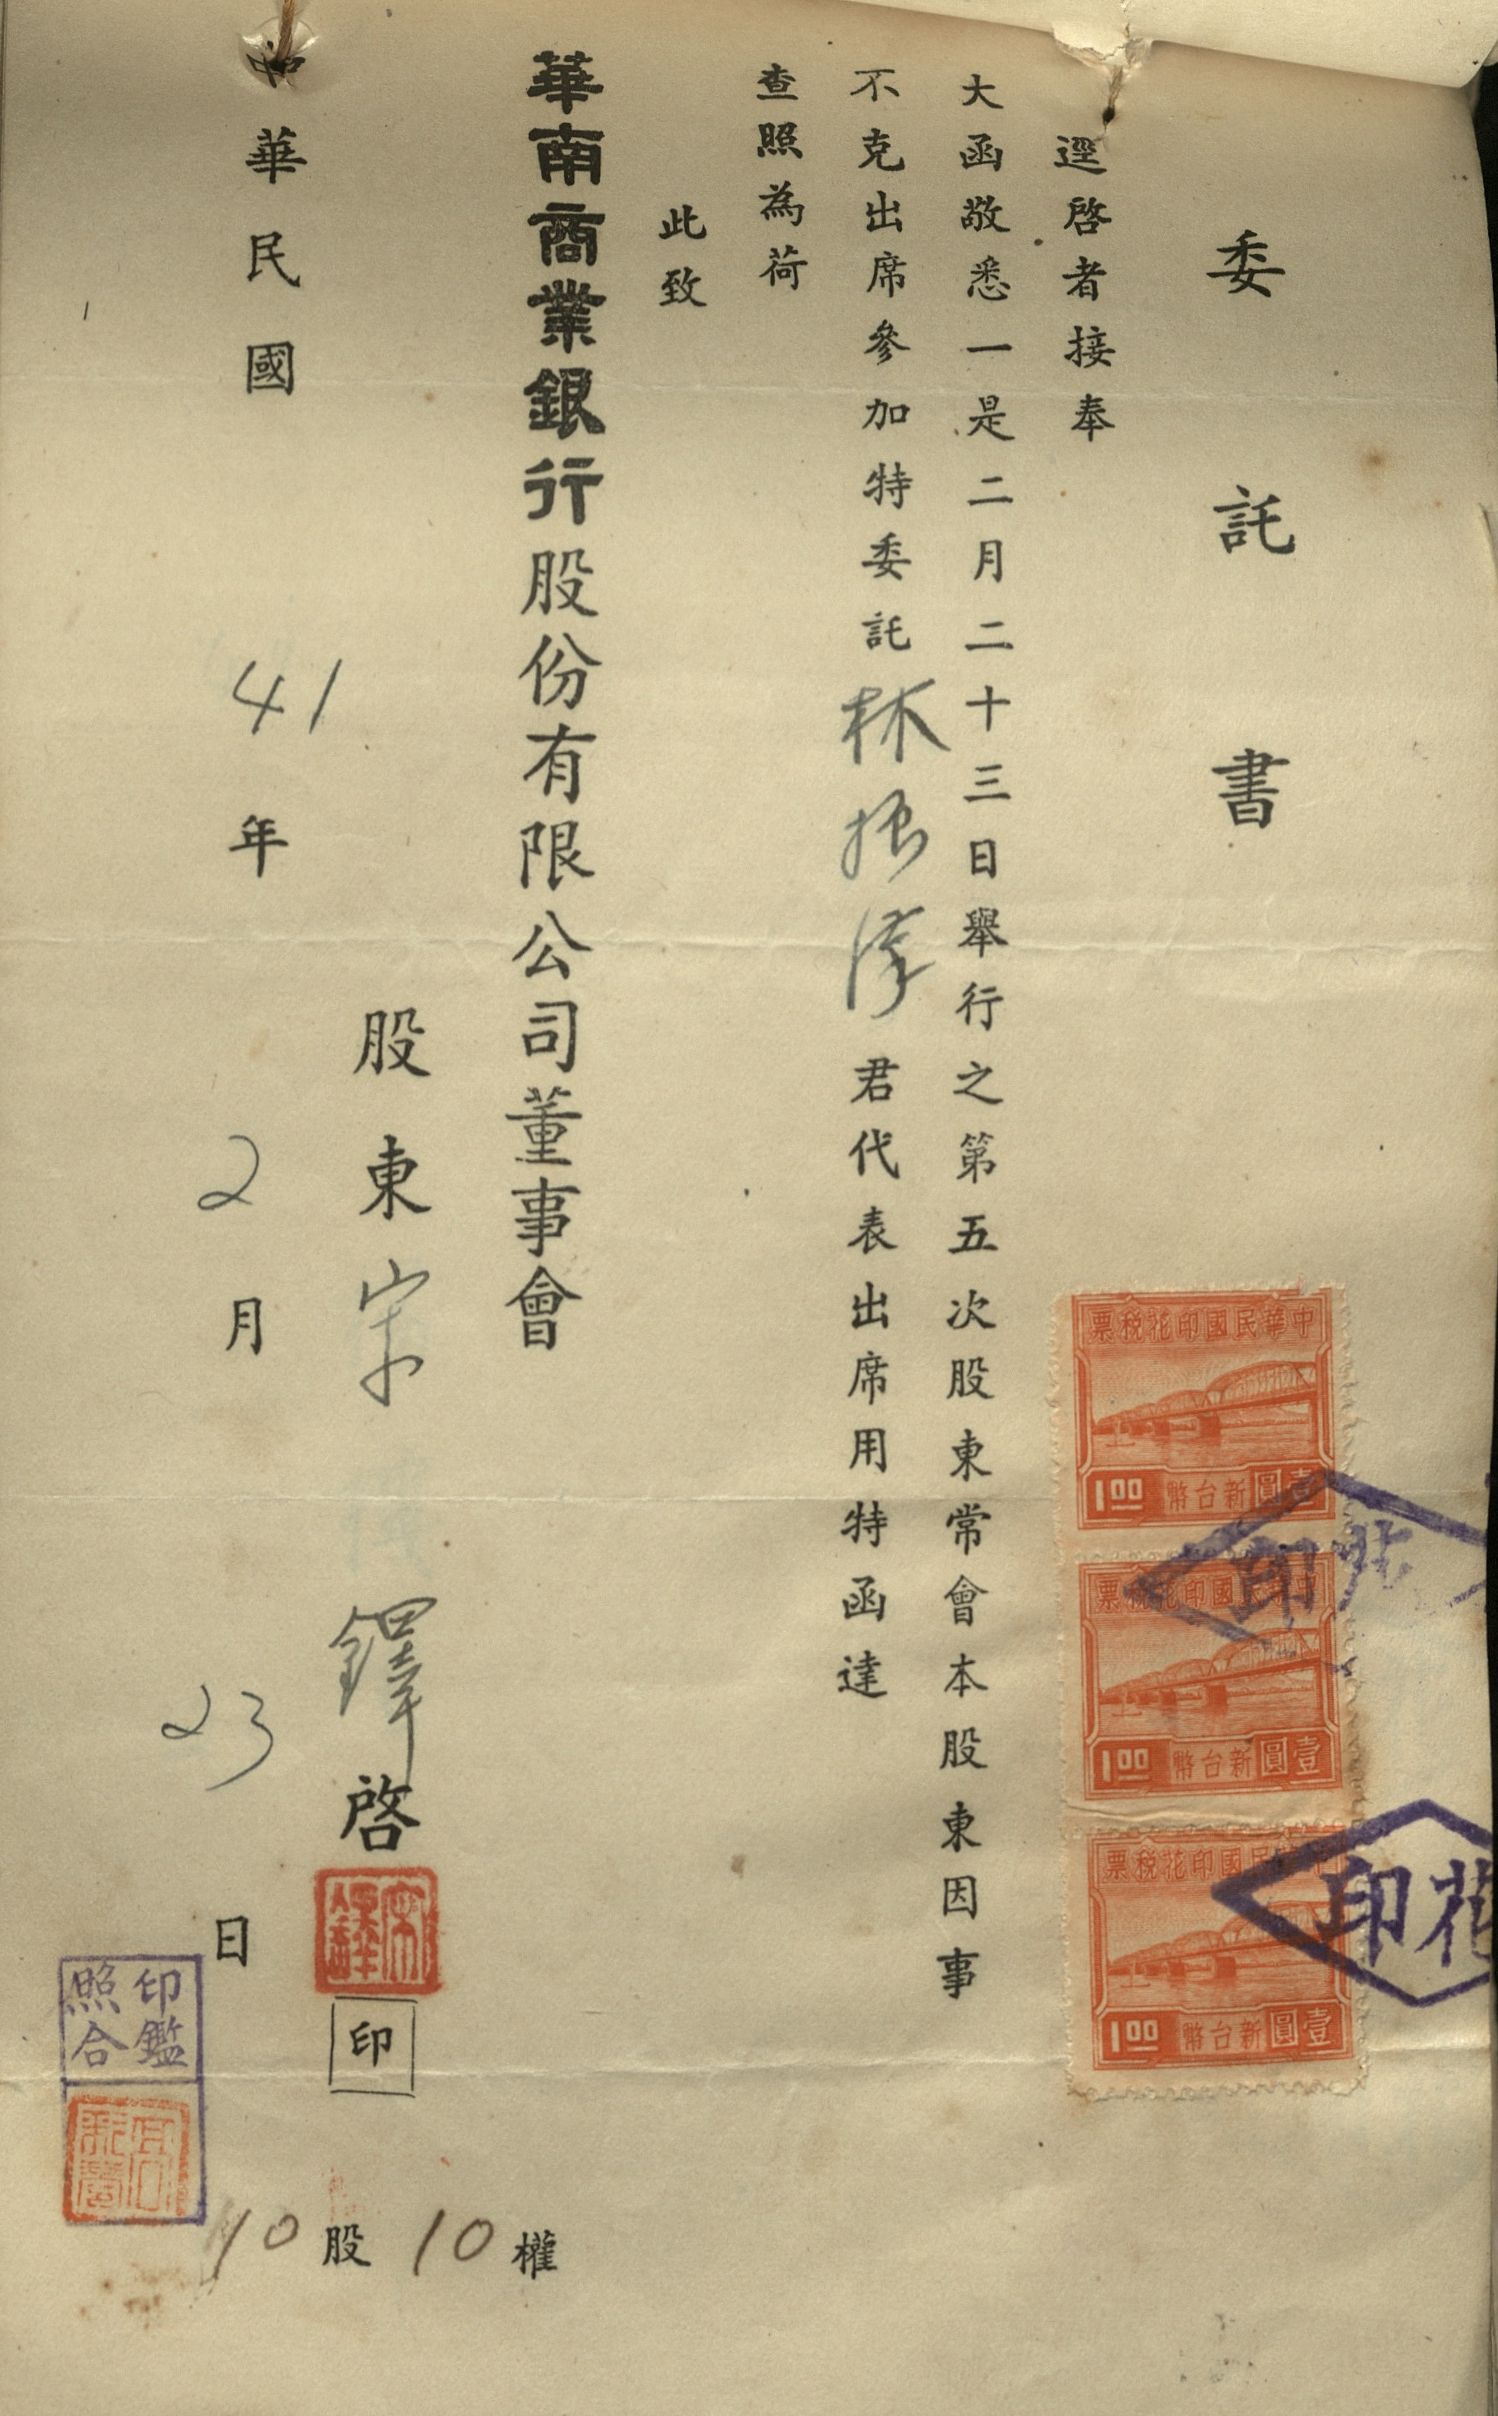 委託書
逕啓者接奉
大函敬悉一是二月二十三日舉行之第五次股東常會本股東因事
不克出席參加特委託林振君代表出席用特函達
查照為荷
此致
華南商業銀行股份有限公司董事會
股東宋鐸啓
宋鐸
印
中華民國41年2月23日
10股10權
印鑑
照合
中華民國印花稅票
壹圓新台幣 1.00
中華民國印花稅票
壹圓新台幣 1.00
中華民國印花稅票
壹圓新台幣 1.00
印花
印花